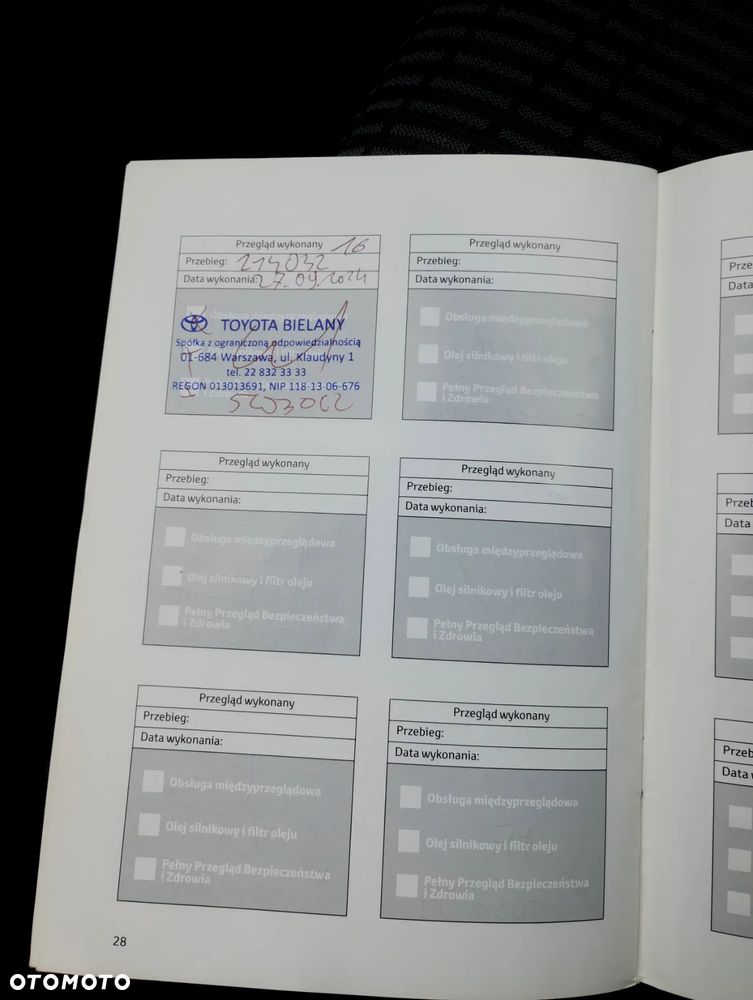 Przegląd wykonany 16
Przebieg: 214032
Data wykonania: 27.09.2024
TOYOTA BIELANY
Spółka z ograniczoną odpowiedzialnością
01-684 Warszawa, ul. Klaudyny 1
tel. 22 832 33 33
REGON 013013691, NIP 118-13-06-676
Przegląd wykonany
Przebieg:
Data wykonania:
Obsługa międzyprzeglądowa
Olej silnikowy i filtr oleju
Pełny Przegląd Bezpieczeństwa
i Zdrowia
Przegląd wykonany
Przebieg:
Data wykonania:
Obsługa międzyprzeglądowa
Olej silnikowy i filtr oleju
Pełny Przegląd Bezpieczeństwa
i Zdrowia
Przegląd wykonany
Przebieg:
Data wykonania:
Obsługa międzyprzeglądowa
Olej silnikowy i filtr oleju
Pełny Przegląd Bezpieczeństwa
i Zdrowia
Przegląd wykonany
Przebieg:
Data wykonania:
Obsługa międzyprzeglądowa
Olej silnikowy i filtr oleju
Pełny Przegląd Bezpieczeństwa
i Zdrowia
Przegląd wykonany
Przebieg:
Data wykonania:
Obsługa międzyprzeglądowa
Olej silnikowy i filtr oleju
Pełny Przegląd Bezpieczeństwa
i Zdrowia
28
OTOMOTO